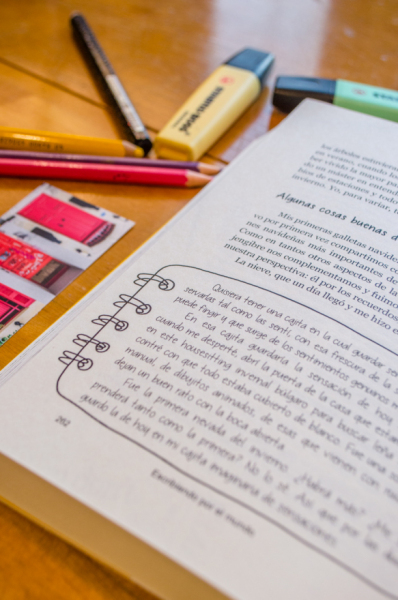 STABILO BOSS
los árboles estuvieron
en verano, cuando
her vivido la mayor pa
do un máster en entend
bios de estaciones a todo
invierno. Yo, para variar, t
Algunas cosas buenas d
Mis primeras galletas navide
vo por primera vez compartimos co
nos navideñas más importantes de
Como en tantos otros aspectos de la
jengibre nos complementamos y fuim
nuestra perspectiva: él por los recuerdos
La nieve, que un día llegó y me hizo s
Quisiera tener una cajita en la cual guardar
servarlas tal como las sentí, con esa frescura de la
puede fingir y que surge de los sentimientos genuinos
En esa cajita guardaría la sensación de hoy
cuando me desperté, abrí la puerta de la casa que estam
en este housesitting invernal búlgaro para buscar leña
contré con que todo estaba cubierto de blanco. Fue una
manual, de dibujitos animados, de esas que vienen con
dejan un buen rato con la boca abierta.
Fue la primera nevada del invierno. ¿Habrá más? ¿Me
prenderá tanto como la primera? No lo sé. Así que por las
guardo la de hoy en mi cajita imaginaria de sensaciones.
282
Escribiendo por el mundo